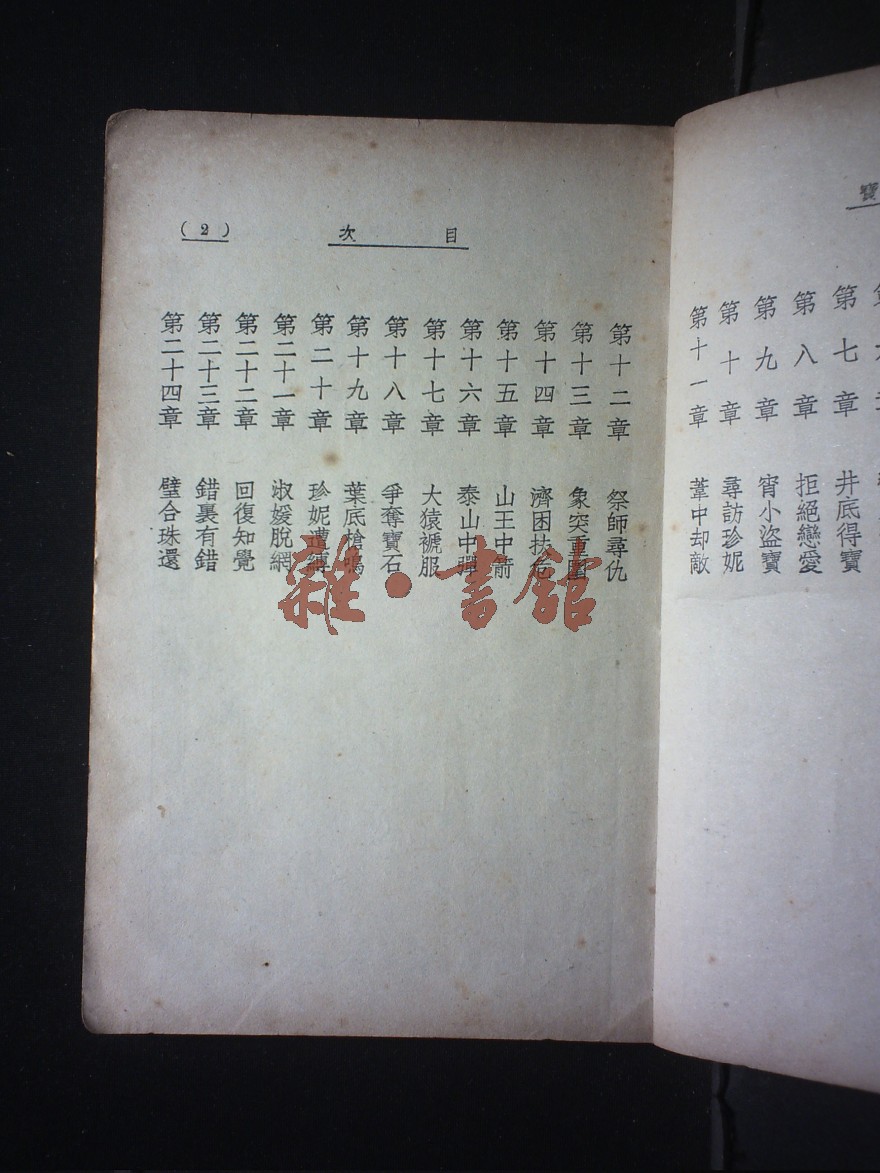 寶
第七章 井底得寶
第八章 拒絕戀愛
第九章 宵小盜寶
第十章 尋訪珍妮
第十一章 葦中却敵
目次 (2)
第十二章 祭師尋仇
第十三章 象突重圍
第十四章 濟困扶危
第十五章 山王中箭
第十六章 泰山中彈
第十七章 大猿褫服
第十八章 爭奪寶石
第十九章 葉底槍鳴
第二十章 珍妮遭縛
第二十一章 淑媛脫網
第二十二章 回復知覺
第二十三章 錯裏有錯
第二十四章 璧合珠還
雜·書館